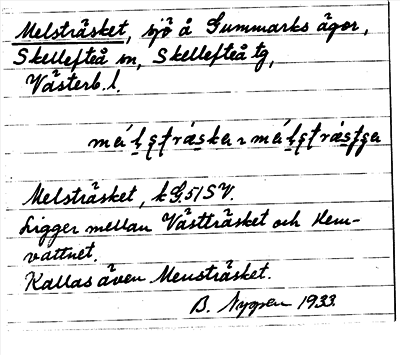 Melsträsket, sjö å Gummarks ägor,
Skellefteå sn, Skellefteå tg,
Västerb. l.
Melsträsket, k G.51 SV.
Ligger mellan Västträsket och Hem-
vattnet.
Kallas även Mensträsket.
B. Nygren 1933